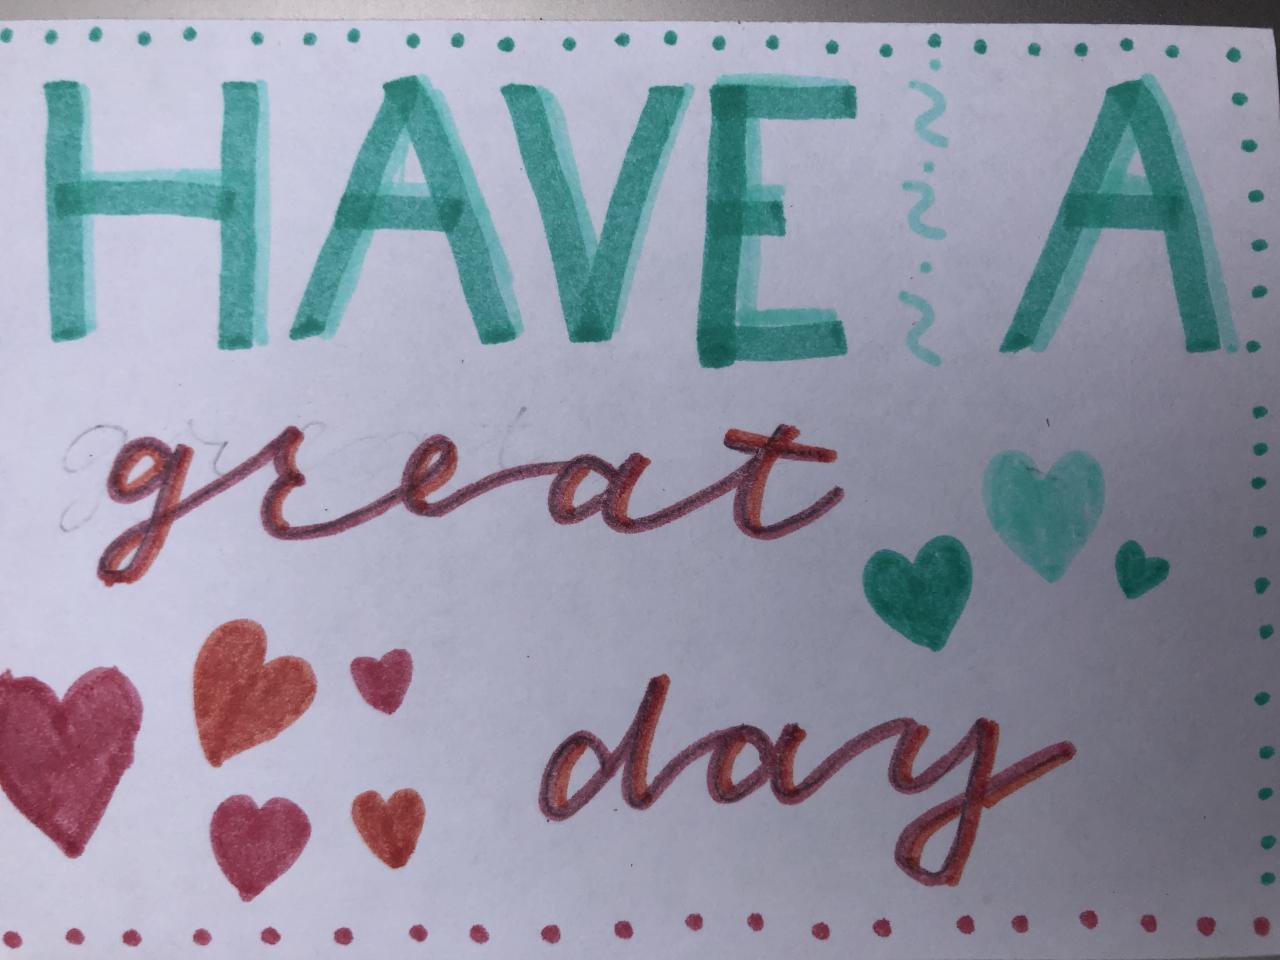 HAVE A
great
day